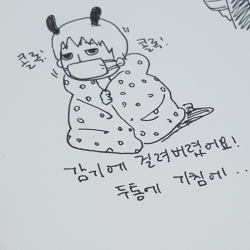 콜록!
콜록!
감기에 걸려버렸어요!
두통에 기침에 ..